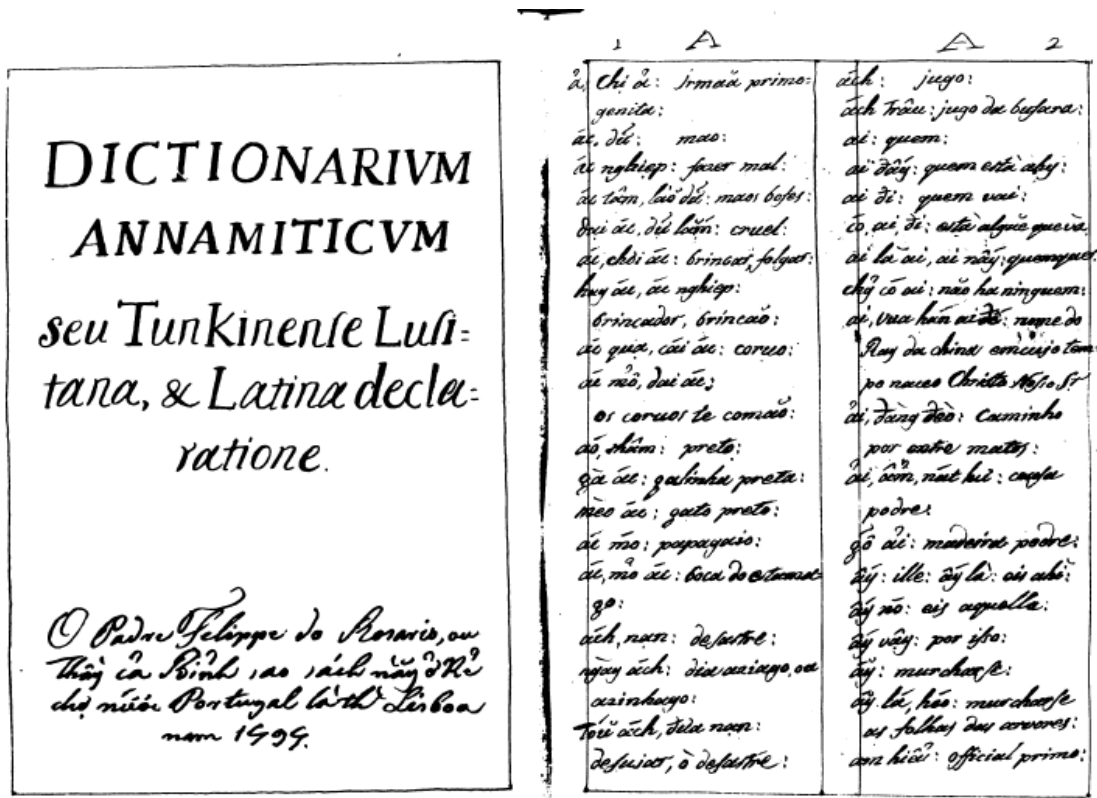 DICTIONARIVM
ANNAMITICVM
seu Tunkinense Lusi=
tana, & Latina decla=
ratione.
O Padre Felippe do Rosario, ou
Thầy cả Bỉnh sao sách nầy ở Kẻ
chợ nước Portugal là thđ Lisboa
nam 1797.
1 A
ả, chị ả: Irmaã primo=
genita:
ác, dữ: mao:
ác nghiep: fazer mal:
ác tâm, lão dữ: maos bofes:
dai ác, dữ lắm: cruel:
ác, chơi ác: brincar, folgar:
hay ác, ác nghiep:
brincador, brincaõ:
ác qua, cái ác: coruo:
ác mổ, dai ác:
os coruos te comaõ:
ác, thâm: preto:
gà ác: galinha preta:
mèo ác: gato preto:
ác mỏ: papagaio:
ác, mỏ ác: boca do estama=
go:
ách, nạn: desastre:
ngày ách: dia aziago, ou
azinhago:
ách, đữa nạn:
desuiar, o desastre:
A 2
ách: jugo:
ách trâu: jugo da bufara:
ai: quem:
ai đấy: quem està ahy:
ai đi: quem vai:
có, ai, đi: està alguẽ que và
ai là ai, ai nấy: quemquer
chẳ có ai: não ha ninguem:
ai, vua hán ai đế: nome do
Ray da china em cujo tem=
po naceo Christo Nosso Sr
ải, đàng đèo: Caminho
por entre matos:
ải, ẩm, nát hư: cousa
podre:
gỗ ải: madeira podre:
ấy: ille: ấy là: eis ahi:
ấy nó: eis aquella:
ấy vậy: por isso:
ấy: murcharse:
ấy lá, héo: murcharse
as folhas das arvores:
am hiểu: official primo: